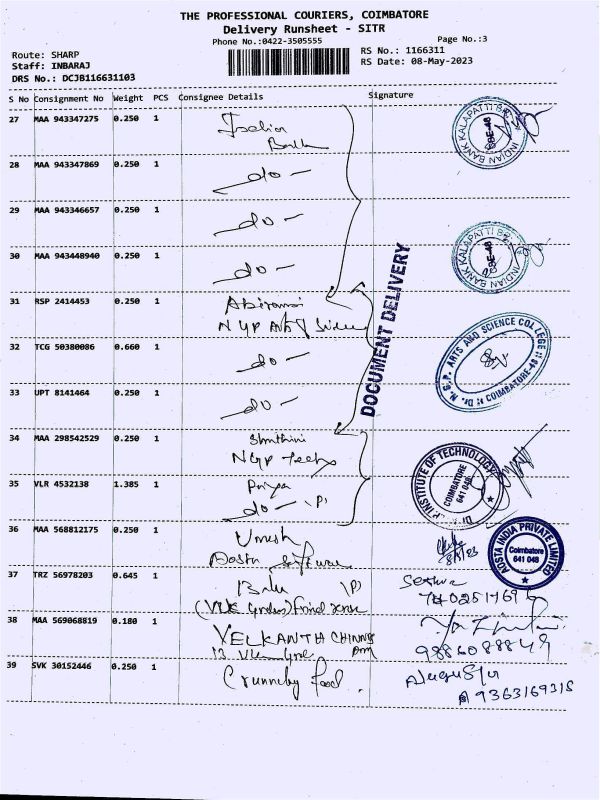 THE PROFESSIONAL COURIERS, COIMBATORE
Delivery Runsheet - SITR
Phone No.:0422-3505555
Page No.:3
Route: SHARP
Staff: INBARAJ
DRS No.: DCJB116631103
RS No.: 1166311
RS Date: 08-May-2023
S No Consignment No Weight PCS Consignee Details Signature
27 MAA 943347275 0.250 1 Indian
Bank
28 MAA 943347869 0.250 1 do -
29 MAA 943346657 0.250 1 do -
30 MAA 943448940 0.250 1 do -
31 RSP 2414453 0.250 1 Abirami
NGP Arts & Science
32 TCG 50380086 0.660 1 do -
33 UPT 8141464 0.250 1 do -
34 MAA 298542529 0.250 1
NGP Tech
35 VLR 4532138 1.385 1 Priya
do - (P)
36 MAA 568812175 0.250 1 Umesh
Aosta Software
37 TRZ 56978203 0.645 1 Balu (P)
38 MAA 569068819 0.180 1 VELKANTH
13
9886088849
39 SVK 30152446 0.250 1 food
9363169318
DOCUMENT DELIVERY
INDIAN BANK KALAPATTI BR.
CBE-48
INDIAN BANK KALAPATTI BR.
CBE-48
Dr. N.G.P. ARTS AND SCIENCE COLLEGE
COIMBATORE-48
INSTITUTE OF TECHNOLOGY
COIMBATORE
641 048
AOSTA INDIA PRIVATE LIMITED
Coimbatore
641 048